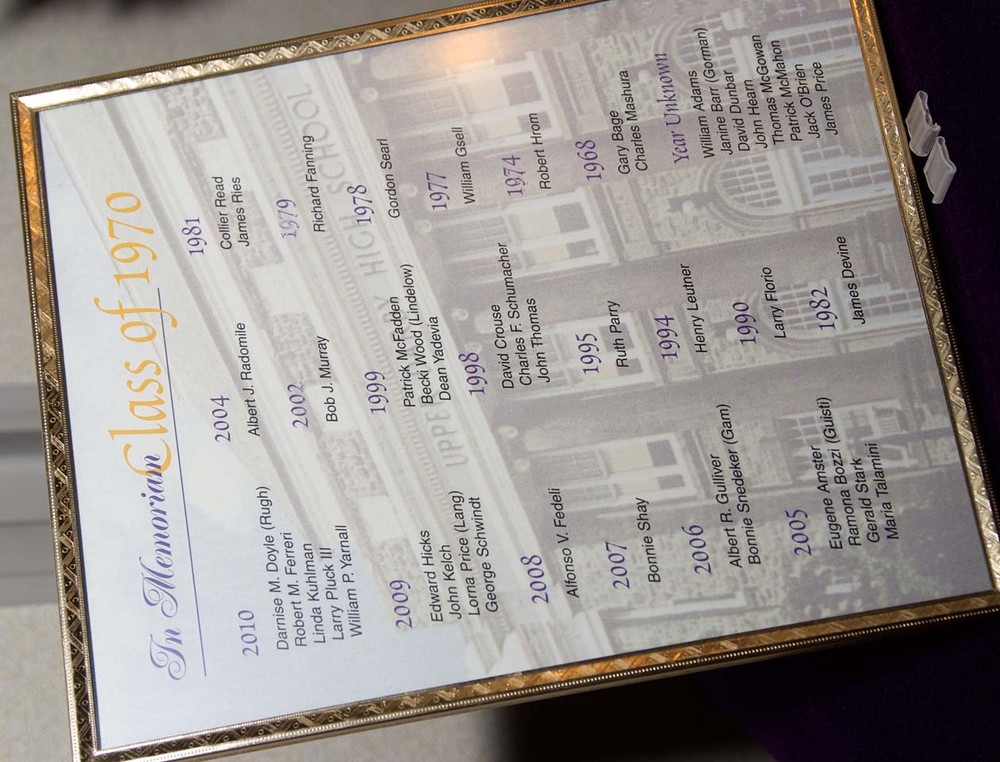 In Memoriam Class of 1970
2010
Darnise M. Doyle (Rugh)
Robert M. Ferreri
Linda Kuhlman
Larry Pluck III
William P. Yarnall
2009
Edward Hicks
John Kelch
Lorna Price (Lang)
George Schwindt
2008
Alfonso V. Fedeli
2007
Bonnie Shay
2006
Albert R. Gulliver
Bonnie Snedeker (Gam)
2005
Eugene Amster
Ramona Bozzi (Guisti)
Gerald Stark
Maria Talamini
2004
Albert J. Radomile
2002
Bob J. Murray
1999
Patrick McFadden
Becki Wood (Lindelow)
Dean Yadevia
1998
David Crouse
Charles F. Schumacher
John Thomas
1995
Ruth Parry
1994
Henry Leutner
1990
Larry Florio
1982
James Devine
1981
Collier Read
James Ries
1979
Richard Fanning
1978
Gordon Searl
1977
William Gsell
1974
Robert Hrom
1968
Gary Bage
Charles Mashura
Year Unknown
William Adams
Janine Barr (Gorman)
David Dunbar
John Hearn
Thomas McGowan
Patrick McMahon
Jack O'Brien
James Price
UPPE HIGH SCHOOL